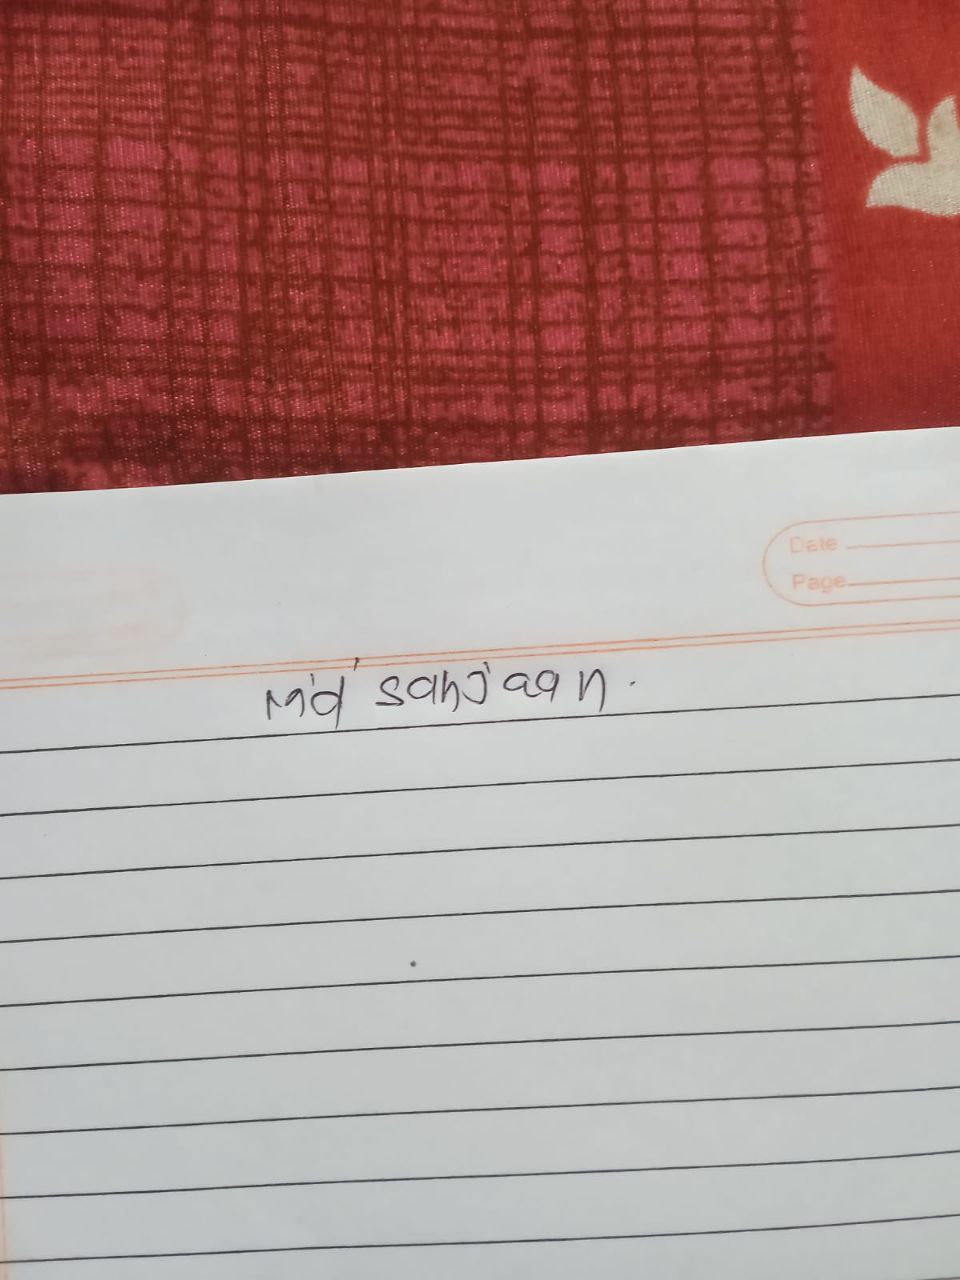 Date
Page
Md sanjaan.